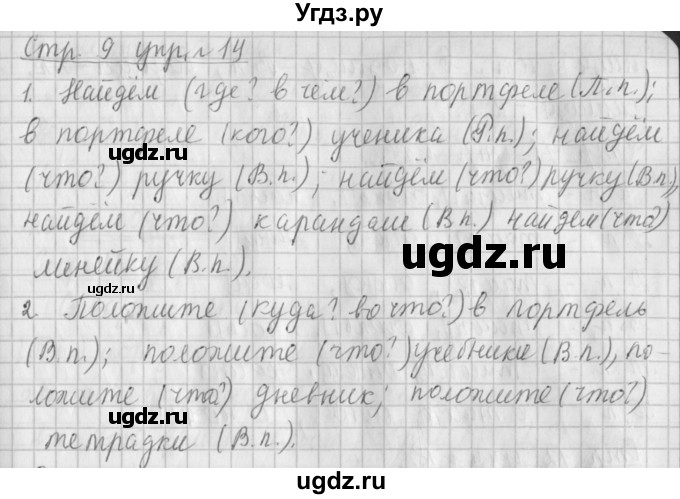 Угдз.ру
Стр. 9 упр. 14
1. Найдём (где? в чём?) в портфеле (П.п.);
в портфеле (кого?) ученика (Р.п.); найдём
(что?) ручку (В.п.); найдём (что?) ручку (В.п.),
найдём (что?) карандаш (В.п.) найдем (что?)
линейку (В.п.).
2. Положите (куда? во что?) в портфель
(В.п.); положите (что?) учебники (В.п.), по-
ложите (что?) дневник; положите (что?)
тетрадки (В.п.).
ugdz.ru
ugdz.ru
ugdz.ru
ugdz.ru
ugdz.ru
ugdz.ru
ugdz.ru